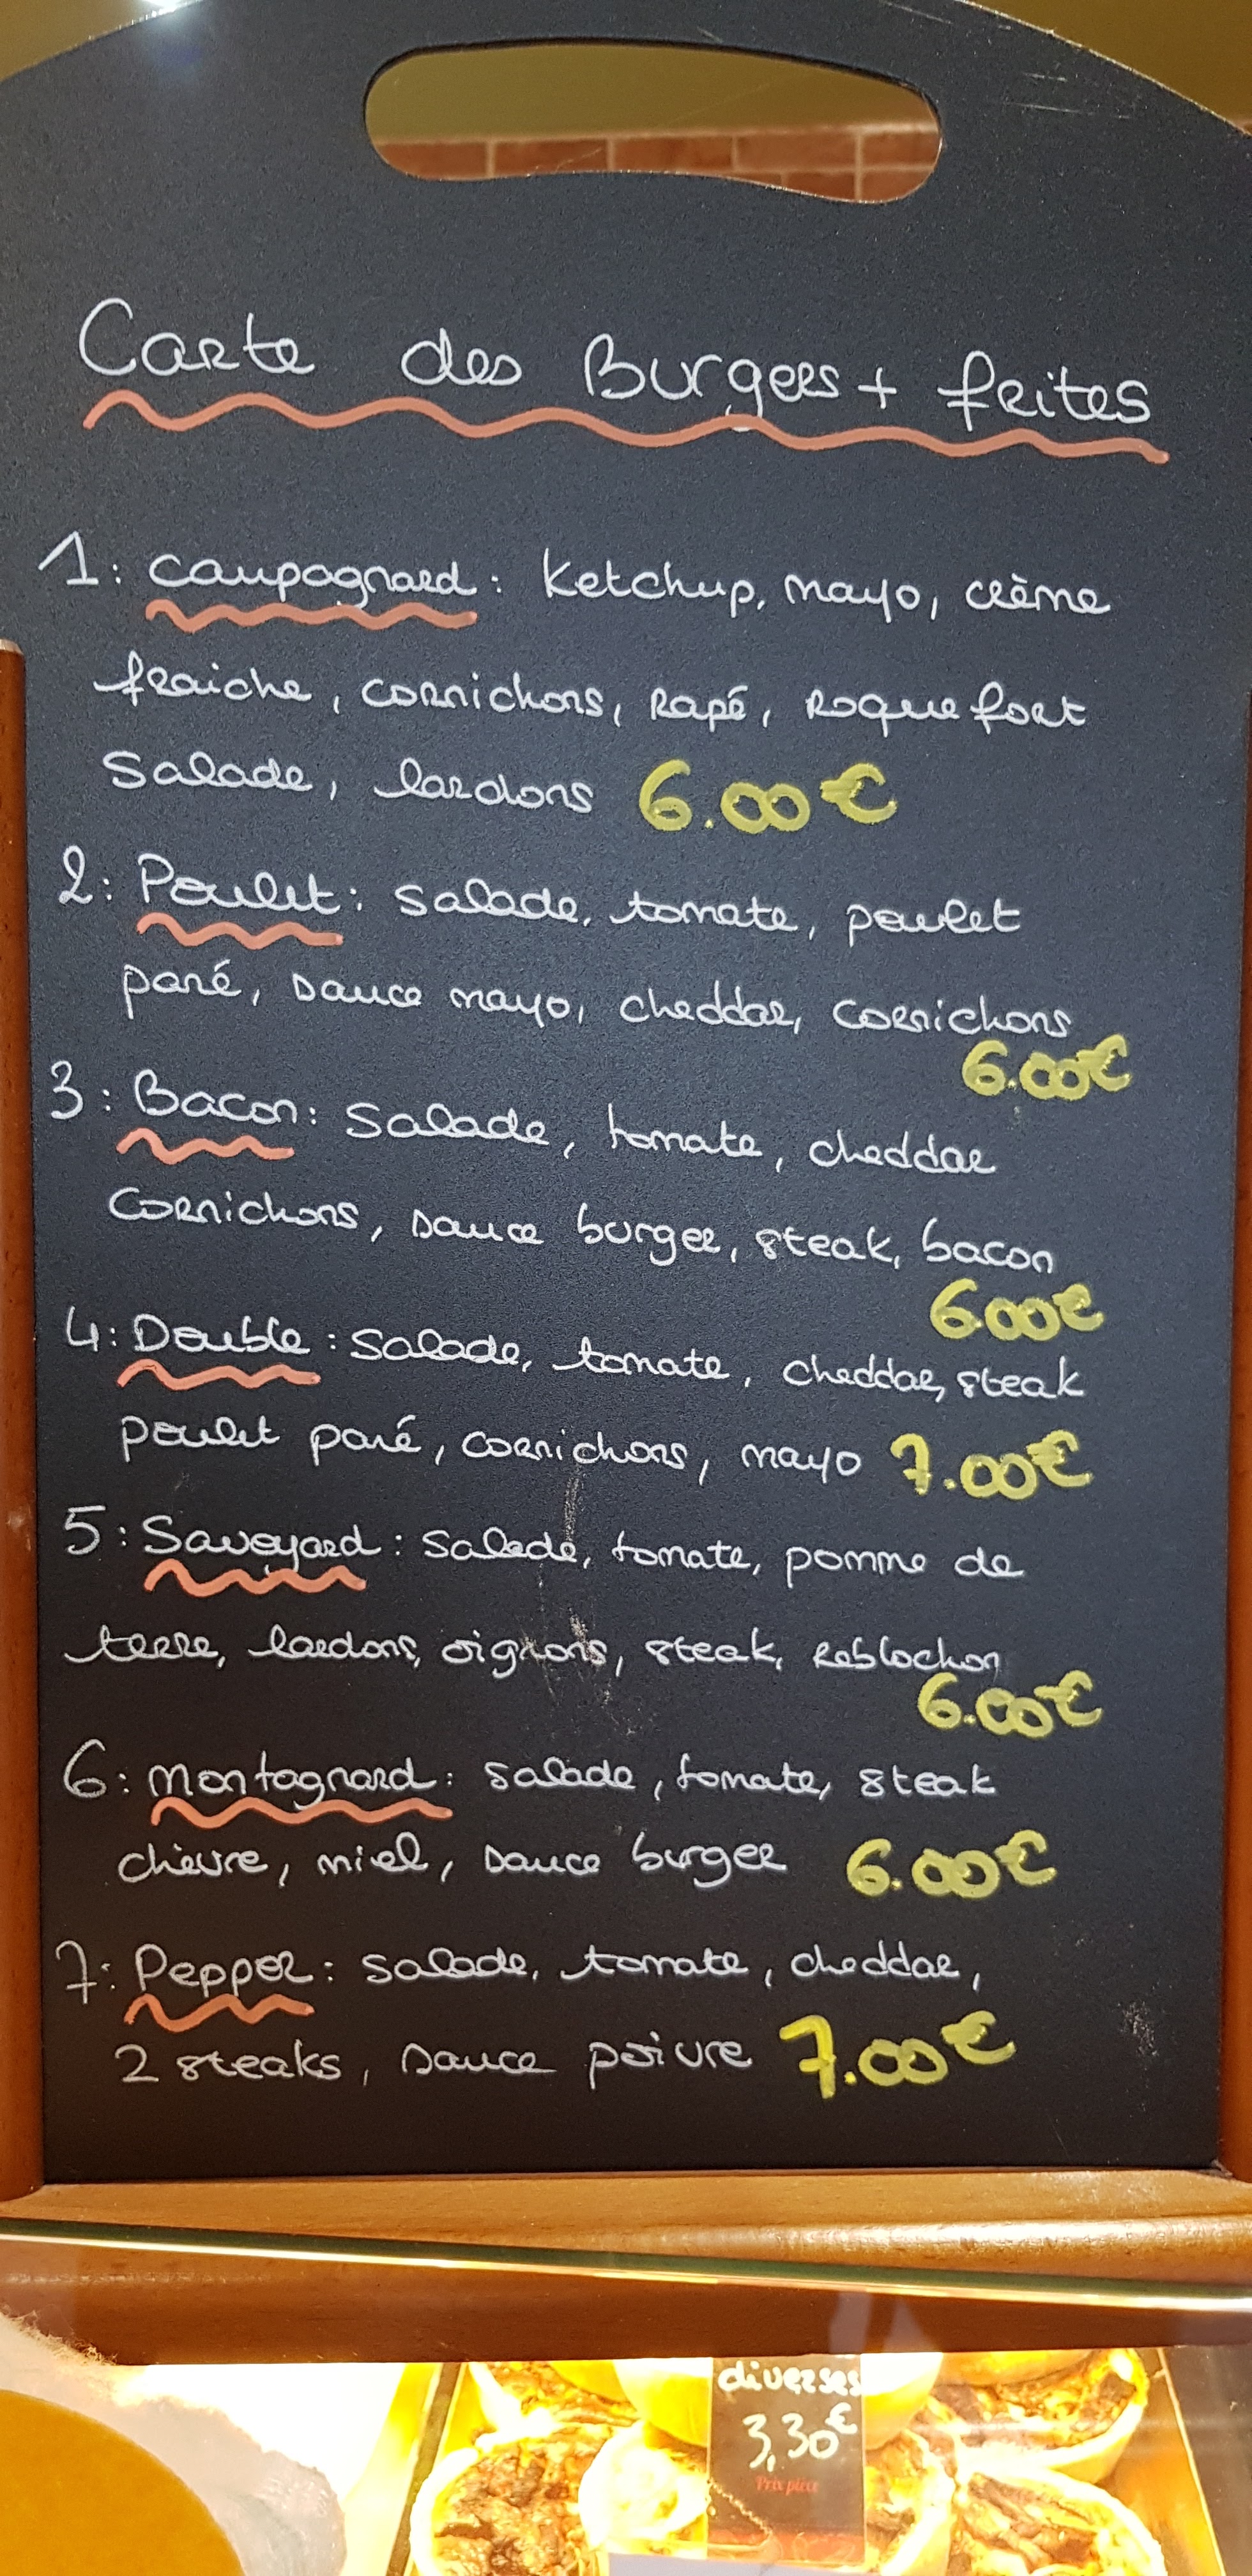 Carte des Burgers + frites
1: Campagnard: Ketchup, mayo, crème
fraiche, cornichons, rapé, roquefort
Salade, lardons 6.00€
2: Poulet: Salade, tomate, poulet
pané, sauce mayo, cheddar, cornichons
6.00€
3: Bacon: Salade, tomate, cheddar
Cornichons, sauce burger, steak, bacon
6.00€
4: Double: Salade, tomate, cheddar, steak
poulet pané, cornichons, mayo 7.00€
5: Savoyard: Salade, tomate, pomme de
terre, lardons, oignons, steak, Reblochon
6.00€
6: Montagnard: salade, tomate, steak
chèvre, miel, sauce burger 6.00€
7: Pepper: salade, tomate, cheddar,
2 steaks, sauce poivre 7.00€
diverses
3,30€
Prix pièce